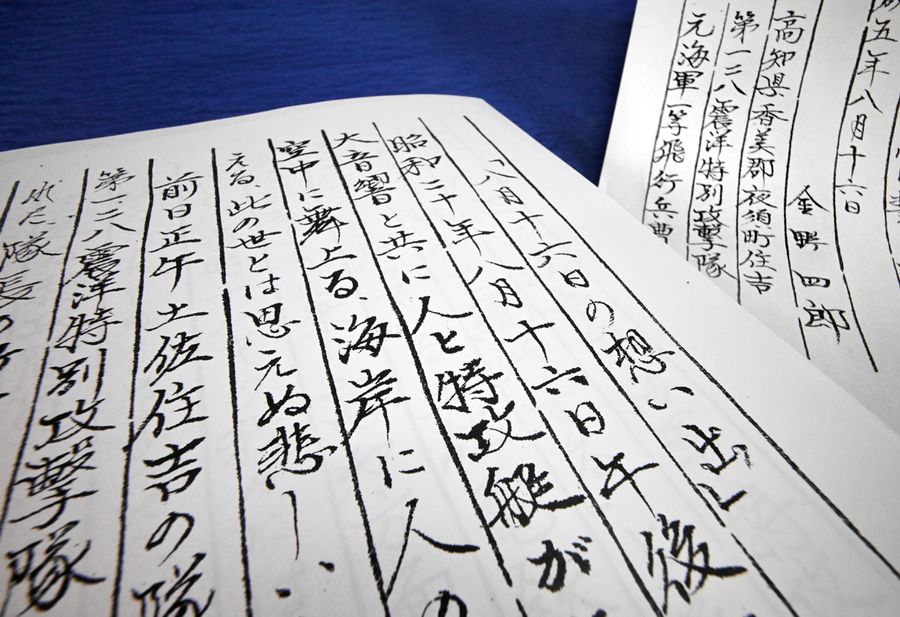 五年八月十六日
金野四郎
高知県香美郡夜須町住吉
第一二八震洋特別攻撃隊
元海軍一等飛行兵曹
八月十六日の想い出
昭和二十年八月十六日午後
大音響と共に人と特攻艇が
空中に舞上る、海岸に人の
える、此の世とは思えぬ悲しい
前日正午土佐住吉の隊
第一二八震洋特別攻撃隊
れた隊長の